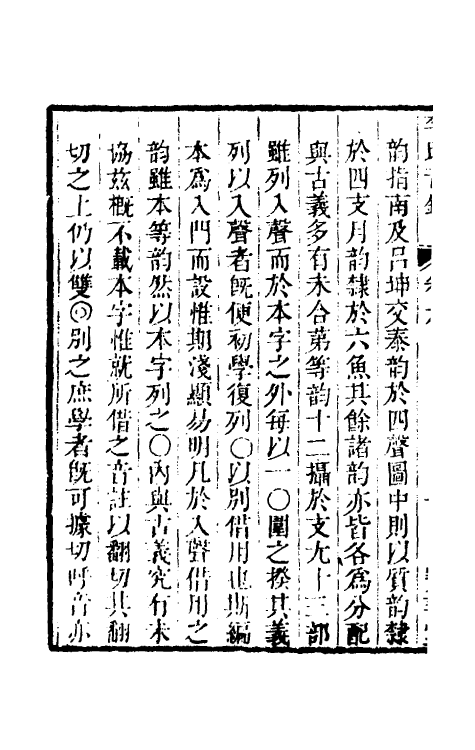 韵指南及吕坤交泰韵於四聲圖中則以質韵隸
於四支月韵隸於六魚其餘諸韵亦皆各爲分配
與古義多有未合第等韵十二攝於支九十三部
雖列入聲而於本字之外每以一〇圍之揆其義
列以入聲者旣便初學復列〇以別借用也斯編
本爲入門而設惟期淺顯易明凡於入聲借用之
韵雖本等韵然以本字列之〇內與古義究有未
協茲概不載本字惟就所借之音註以翻切其翻
切之上仍以雙◎別之庶學者旣可據切呼音亦